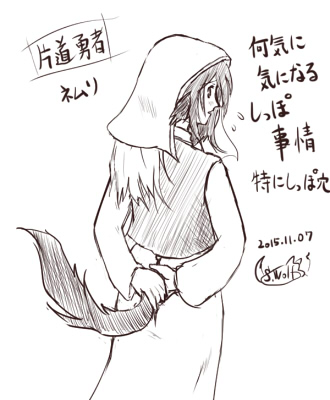 片道勇者
ネムリ
何気に
気になる
しっぽ
事情
特にしっぽ穴
2015.11.07
S.Wolf